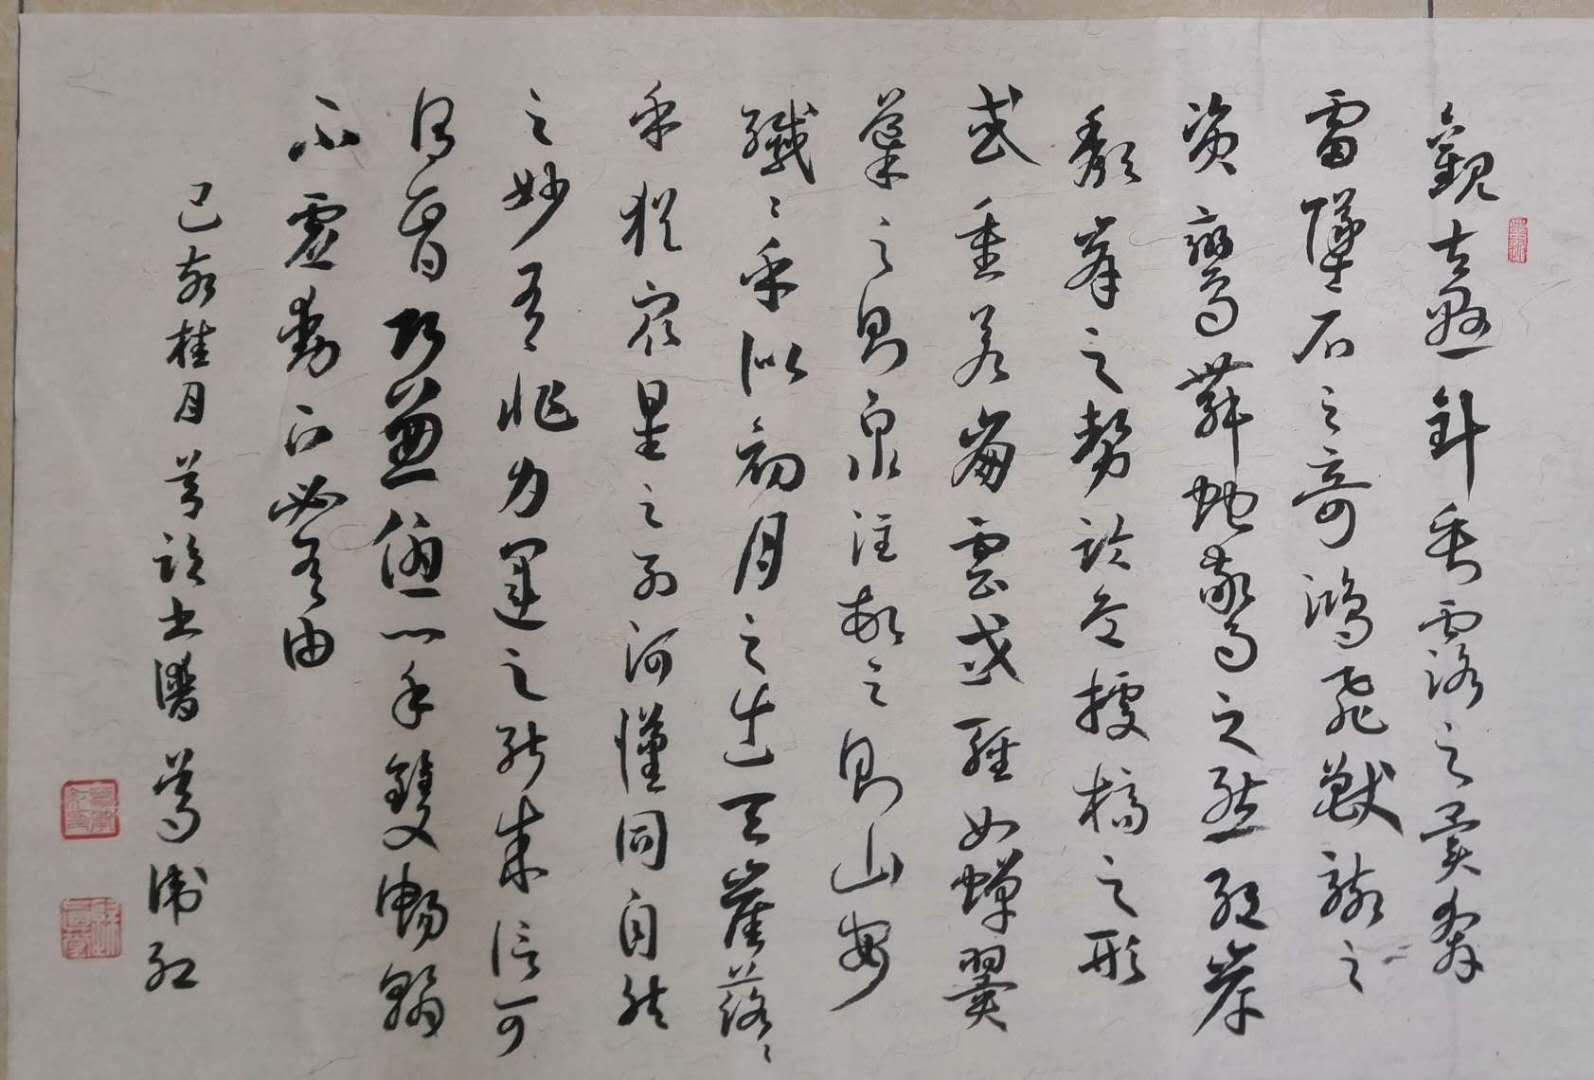 觀夫懸針垂露之異奔
雷墜石之奇鴻飛獸駭之
資鸞舞蛇驚之態絕岸
頹峰之勢臨危據槁之形
或重若崩雲或輕如蟬翼
導之則泉注頓之則山安
纖〻乎似初月之出天崖落〻
乎猶眾星之列河漢同自然
之妙有非力運之能成信可
謂智巧兼優心手雙暢翰
不虛動下必有由
己亥桂月節書譜衛紅